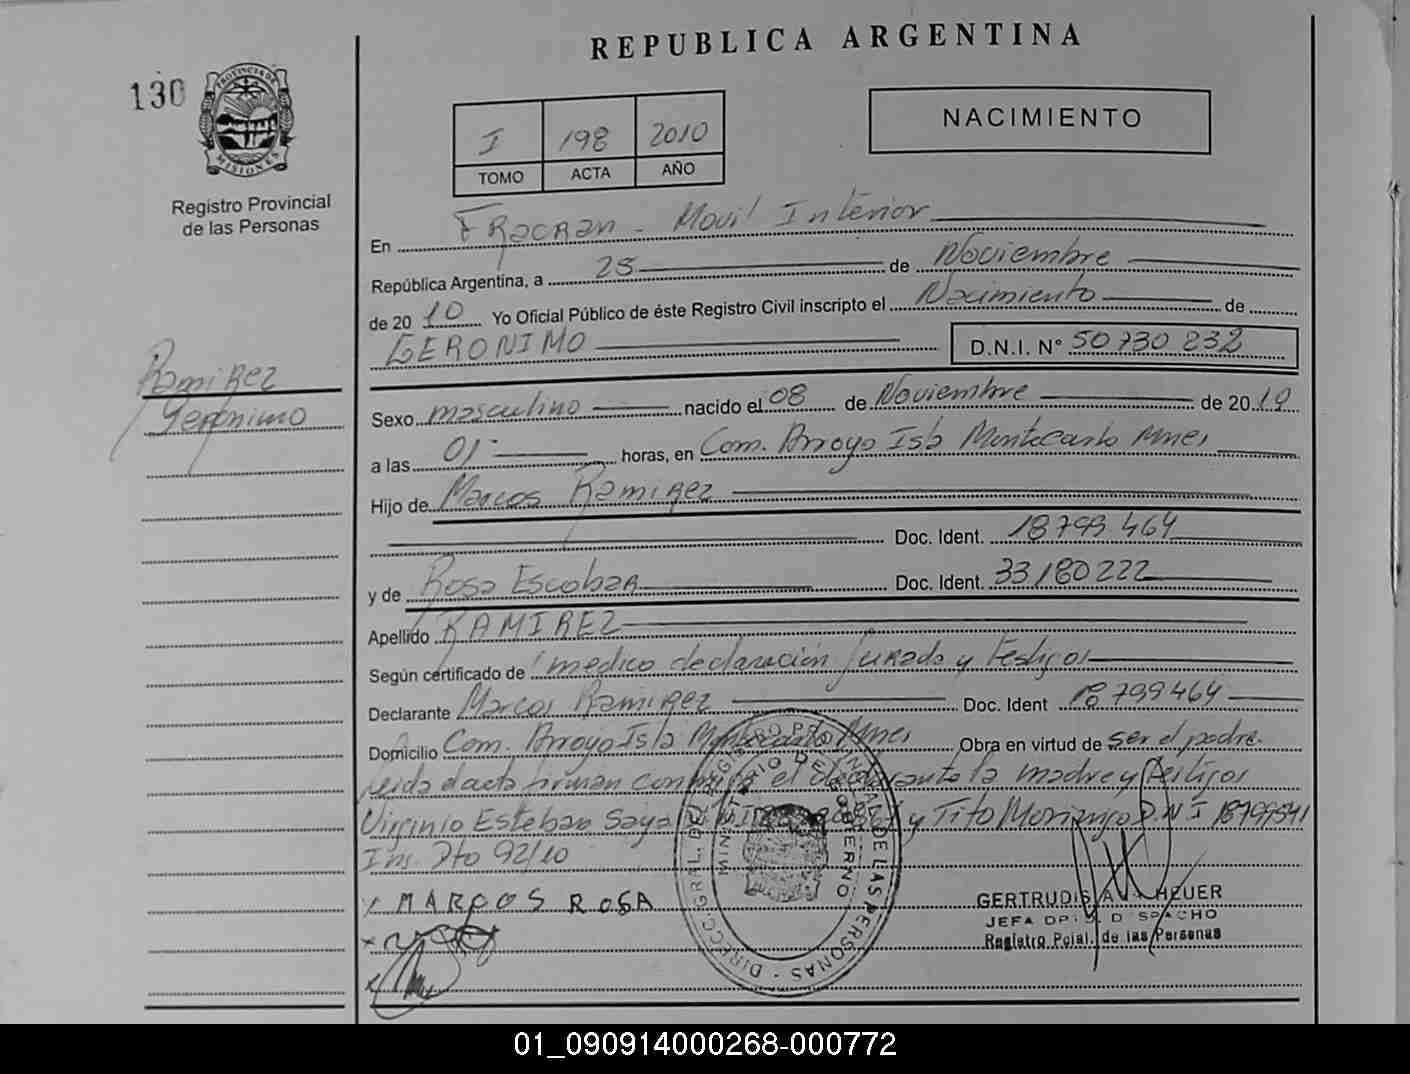 REPUBLICA ARGENTINA
130
PROVINCIA DE
MISIONES
Registro Provincial
de las Personas
I 198 2010
TOMO ACTA AÑO
NACIMIENTO
En Fracran - Movil Interior
República Argentina, a 25 de Noviembre
de 20 10 Yo Oficial Público de éste Registro Civil inscripto el Nacimiento de
GERONIMO D.N.I. N° 50 730 232
Ramirez
Geronimo
Sexo masculino nacido el 08 de Noviembre de 20
a las 01 horas, en Com. Arroyo Isla Montecarlo Mnes
Hijo de Marcos Ramirez
Doc. Ident. 18 799 464
y de Rosa Escobar Doc. Ident. 33 180 222
Apellido RAMIREZ
Según certificado de medico declaración Jurada y testigos
Declarante Marcos Ramirez Doc. Ident 18 799464
Domicilio Com. Arroyo Isla Montecarlo Mnes Obra en virtud de ser el padre.
Leida el acta firman conmigo el declarante la madre y testigos
Virginio Esteban y Tito D.N I 18799541
Ins. Dto 92/10
x MARCOS ROSA
DIRECC. GRAL. DEL REGISTRO PROVINCIAL DE LAS PERSONAS
MINISTERIO DE GOBIERNO
GERTRUDIS A. HEUER
JEFA DPTO. DESPACHO
Registro Pcial. de las Personas
01_090914000268-000772